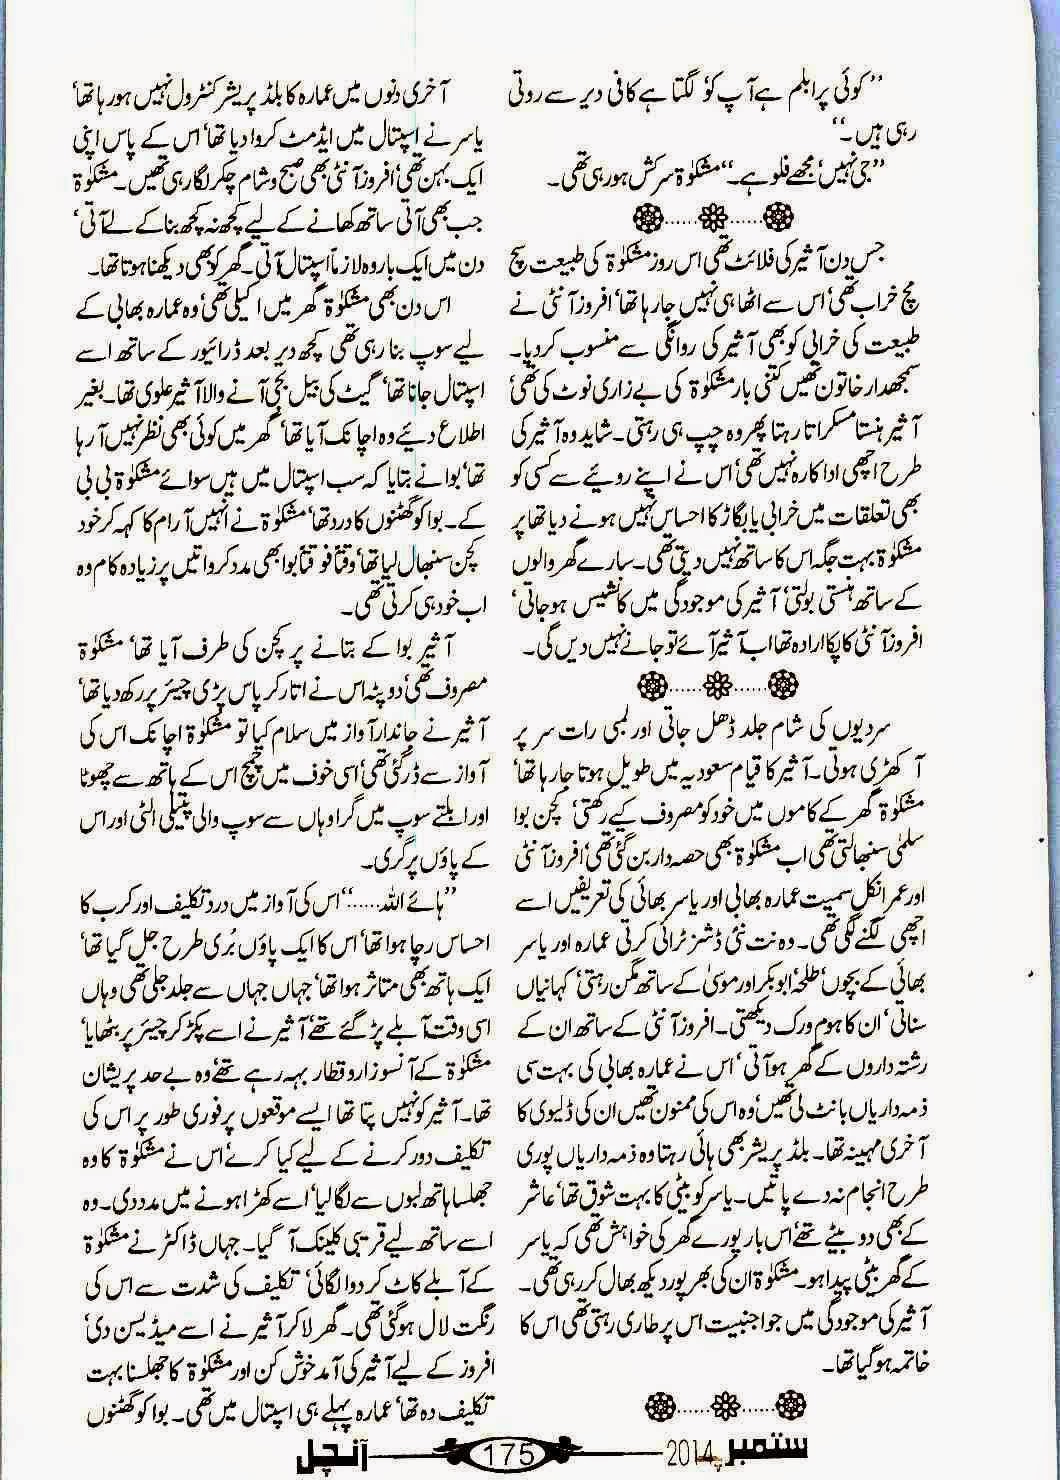 ”کوئی پرابلم ہے آپ کو‘ لگتا ہے کافی دیر سے روتی
رہی ہیں۔“
”جی نہیں‘ مجھے فلو ہے۔“ مشکوٰۃ سرکش ہورہی تھی۔
جس دن آثیر کی فلائٹ تھی اس روز مشکوٰۃ کی طبیعت سچ
مچ خراب تھی‘ اس سے اٹھا ہی نہیں جارہا تھا‘ افروز آنٹی نے
طبیعت کی خرابی کو بھی آثیر کی روانگی سے منسوب کردیا۔
سمجھدار خاتون تھیں کتنی بار مشکوٰۃ کی بے زاری نوٹ کی تھی‘
آثیر ہنستا مسکراتا رہتا پھر وہ چپ ہی رہتی۔ شاید وہ آثیر کی
طرح اچھی اداکارہ نہیں تھی‘ اس نے اپنے رویئے سے کسی کو
بھی تعلقات میں خرابی یا بگاڑ کا احساس نہیں ہونے دیا تھا پر
مشکوٰۃ بہت جگہ اس کا ساتھ نہیں دیتی تھی۔ سارے گھر والوں
کے ساتھ ہنستی بولتی‘ آثیر کی موجودگی میں کانشیس ہوجاتی‘
افروز آنٹی کا پکا ارادہ تھا اب آثیر آئے تو جانے نہیں دیں گی۔
سردیوں کی شام جلد ڈھل جاتی اور لمبی رات سر پر
آ کھڑی ہوتی۔ آثیر کا قیام سعودیہ میں طویل ہوتا جارہا تھا‘
مشکوٰۃ گھر کے کاموں میں خود کو مصروف کیے رکھتی‘ کچن بوا
سلمٰی سنبھالتی تھی اب مشکوٰۃ بھی حصہ دار بن گئی تھی‘ افروز آنٹی
اور عمر انکل سمیت عمارہ بھابی اور یاسر بھائی کی تعریفیں اسے
اچھی لگنے لگی تھی۔ وہ نت نئی ڈشز ٹرائی کرتی عمارہ اور یاسر
بھائی کے بچوں‘ طلحہ‘ ابوبکر اور موسیٰ کے ساتھ مگن رہتی‘ کہانیاں
سناتی‘ ان کا ہوم ورک دیکھتی۔ افروز آنٹی کے ساتھ ان کے
رشتہ داروں کے گھر ہو آتی‘ اس نے عمارہ بھابی کی بہت سی
ذمہ داریاں بانٹ لی تھیں‘ وہ اس کی ممنون تھیں ان کی ڈلیوی کا
آخری مہینہ تھا۔ بلڈ پریشر بھی ہائی رہتا وہ ذمہ داریاں پوری
طرح انجام نہ دے پاتیں۔ یاسر کو بیٹی کا بہت شوق تھا‘ عاشر
کے بھی دو بیٹے تھے‘ اس بار پورے گھر کی خواہش تھی کہ یاسر
کے گھر بیٹی پیدا ہو۔ مشکوٰۃ ان کی بھرپور دیکھ بھال کررہی تھی۔
آثیر کی موجودگی میں جو اجنبیت اس پر طاری رہتی تھی اس کا
خاتمہ ہوگیا تھا۔
آخری دنوں میں عمارہ کا بلڈ پریشر کنٹرول نہیں ہورہا تھا‘
یاسر نے اسپتال میں ایڈمٹ کروا دیا تھا‘ اس کے پاس اپنی
ایک بہن تھی‘ افروز آنٹی بھی صبح و شام چکر لگا رہی تھیں۔ مشکوٰۃ
جب بھی آتی ساتھ کھانے کے لیے کچھ نہ کچھ بنا کے لے آتی‘
دن میں ایک بار وہ لازماً اسپتال آتی۔ گھر کو بھی دیکھنا ہوتا تھا۔
اس دن بھی مشکوٰۃ گھر میں اکیلی تھی‘ وہ عمارہ بھابی کے
لیے سوپ بنا رہی تھی کچھ دیر بعد ڈرائیور کے ساتھ اسے
اسپتال جانا تھا‘ گیٹ کی بیل بجی آنے والا آثیر علوی تھا۔ بغیر
اطلاع دیئے وہ اچانک آیا تھا‘ گھر میں کوئی بھی نظر نہیں آرہا
تھا‘ بوا نے بتایا کہ سب اسپتال میں ہیں سوائے مشکوٰۃ بی بی
کے۔ بوا کو گھٹنوں کا درد تھا‘ مشکوٰۃ نے انہیں آرام کا کہہ کر خود
کچن سنبھال لیا تھا‘ وقتاً فوقتاً بوا بھی مدد کرواتیں پر زیادہ کام وہ
اب خود ہی کرتی تھی۔
آثیر بوا کے بتانے پر کچن کی طرف آیا تھا‘ مشکوٰۃ
مصروف تھی‘ دوپٹہ اس نے اتار کر پاس پڑی چیئر پر رکھ دیا تھا‘
آثیر نے جاندار آواز میں سلام کیا تو مشکوٰۃ اچانک اس کی
آواز سے ڈر گئی تھی‘ اسی خوف میں چمچ اس کے ہاتھ سے چھوٹا
اور ابلتے سوپ میں گرا وہاں سے سوپ والی پتیلی الٹی اور اس
کے پاؤں پر گری۔
”ہائے اللہ......“ اس کی آواز میں درد تکلیف اور کرب کا
احساس رچا ہوا تھا‘ اس کا ایک پاؤں بُری طرح جل گیا تھا‘
ایک ہاتھ بھی متاثر ہوا تھا‘ جہاں جہاں سے جلد جلی تھی وہاں
اسی وقت آبلے پڑ گئے تھے‘ آثیر نے اسے پکڑ کر چیئر پر بٹھایا‘
مشکوٰۃ کے آنسو زار و قطار بہہ رہے تھے‘ وہ بے حد پریشان
تھا۔ آثیر کو نہیں پتا تھا ایسے موقعوں پر فوری طور پر اس کی
تکلیف دور کرنے کے لیے کیا کرے‘ اس نے مشکوٰۃ کا وہ
جھلسا ہاتھ لبوں سے لگالیا‘ اسے کھڑا ہونے میں مدد دی۔ وہ
اسے ساتھ لیے قریبی کلینک آ گیا۔ جہاں ڈاکٹر نے مشکوٰۃ
کے آبلے کاٹ کر دوا لگائی‘ تکلیف کی شدت سے اس کی
رنگت لال ہوگئی تھی۔ گھر لاکر آثیر نے اسے میڈیسن دی‘
افروز کے لیے آثیر کی آمد خوش کن اور مشکوٰۃ کا جھلسنا بہت
تکلیف دہ تھا‘ عمارہ پہلے ہی اسپتال میں تھی۔ بوا کو گھٹنوں
ستمبر 2014ء 175 آنچل